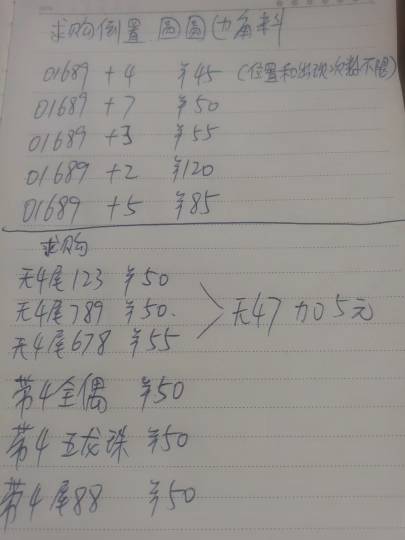 求购倒置 圆圆 1角料
01689 +4 ¥45 (位置和出现次数不限)
01689 +7 ¥50
01689 +3 ¥55
01689 +2 ¥120
01689 +5 ¥85
求购
无4尾123 ¥50
无4尾789 ¥50. 无47 加5元
无4尾678 ¥55
带4全偶 ¥50
带4五龙珠 ¥50
带4尾88 ¥50